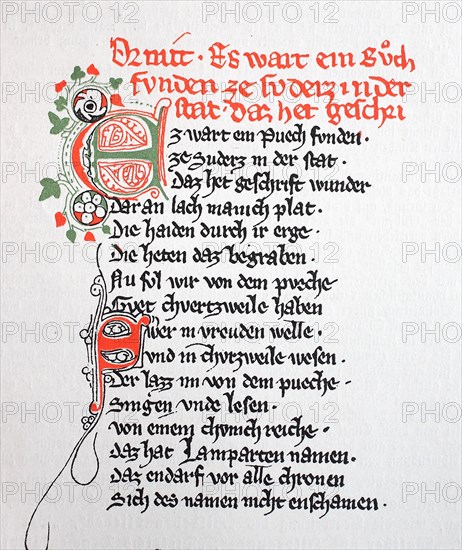 Ortnit · Es wart ein Bůch
funden ze suderz in der
stat · daz het geschri
Ez wart ein puech fonden ·
ze Suderz in der stat ·
Daz het geschrift wunder
Daran lach manich plat ·
Die haiden durch ir erge ·
Die heten daz begraben ·
Nu sol wir von dem pveche
Gvet chvertzweile haben
Swer in vreuden welle ·
vnd in chvrzweile wesen ·
Der lazz im von dem pueche ·
Singen vnde lesen ·
von einem chvnich reiche ·
daz hat Lamparten namen ·
Daz endarf vor alle chronen
Sich des namen nicht enschamen ·
PHOTO 12